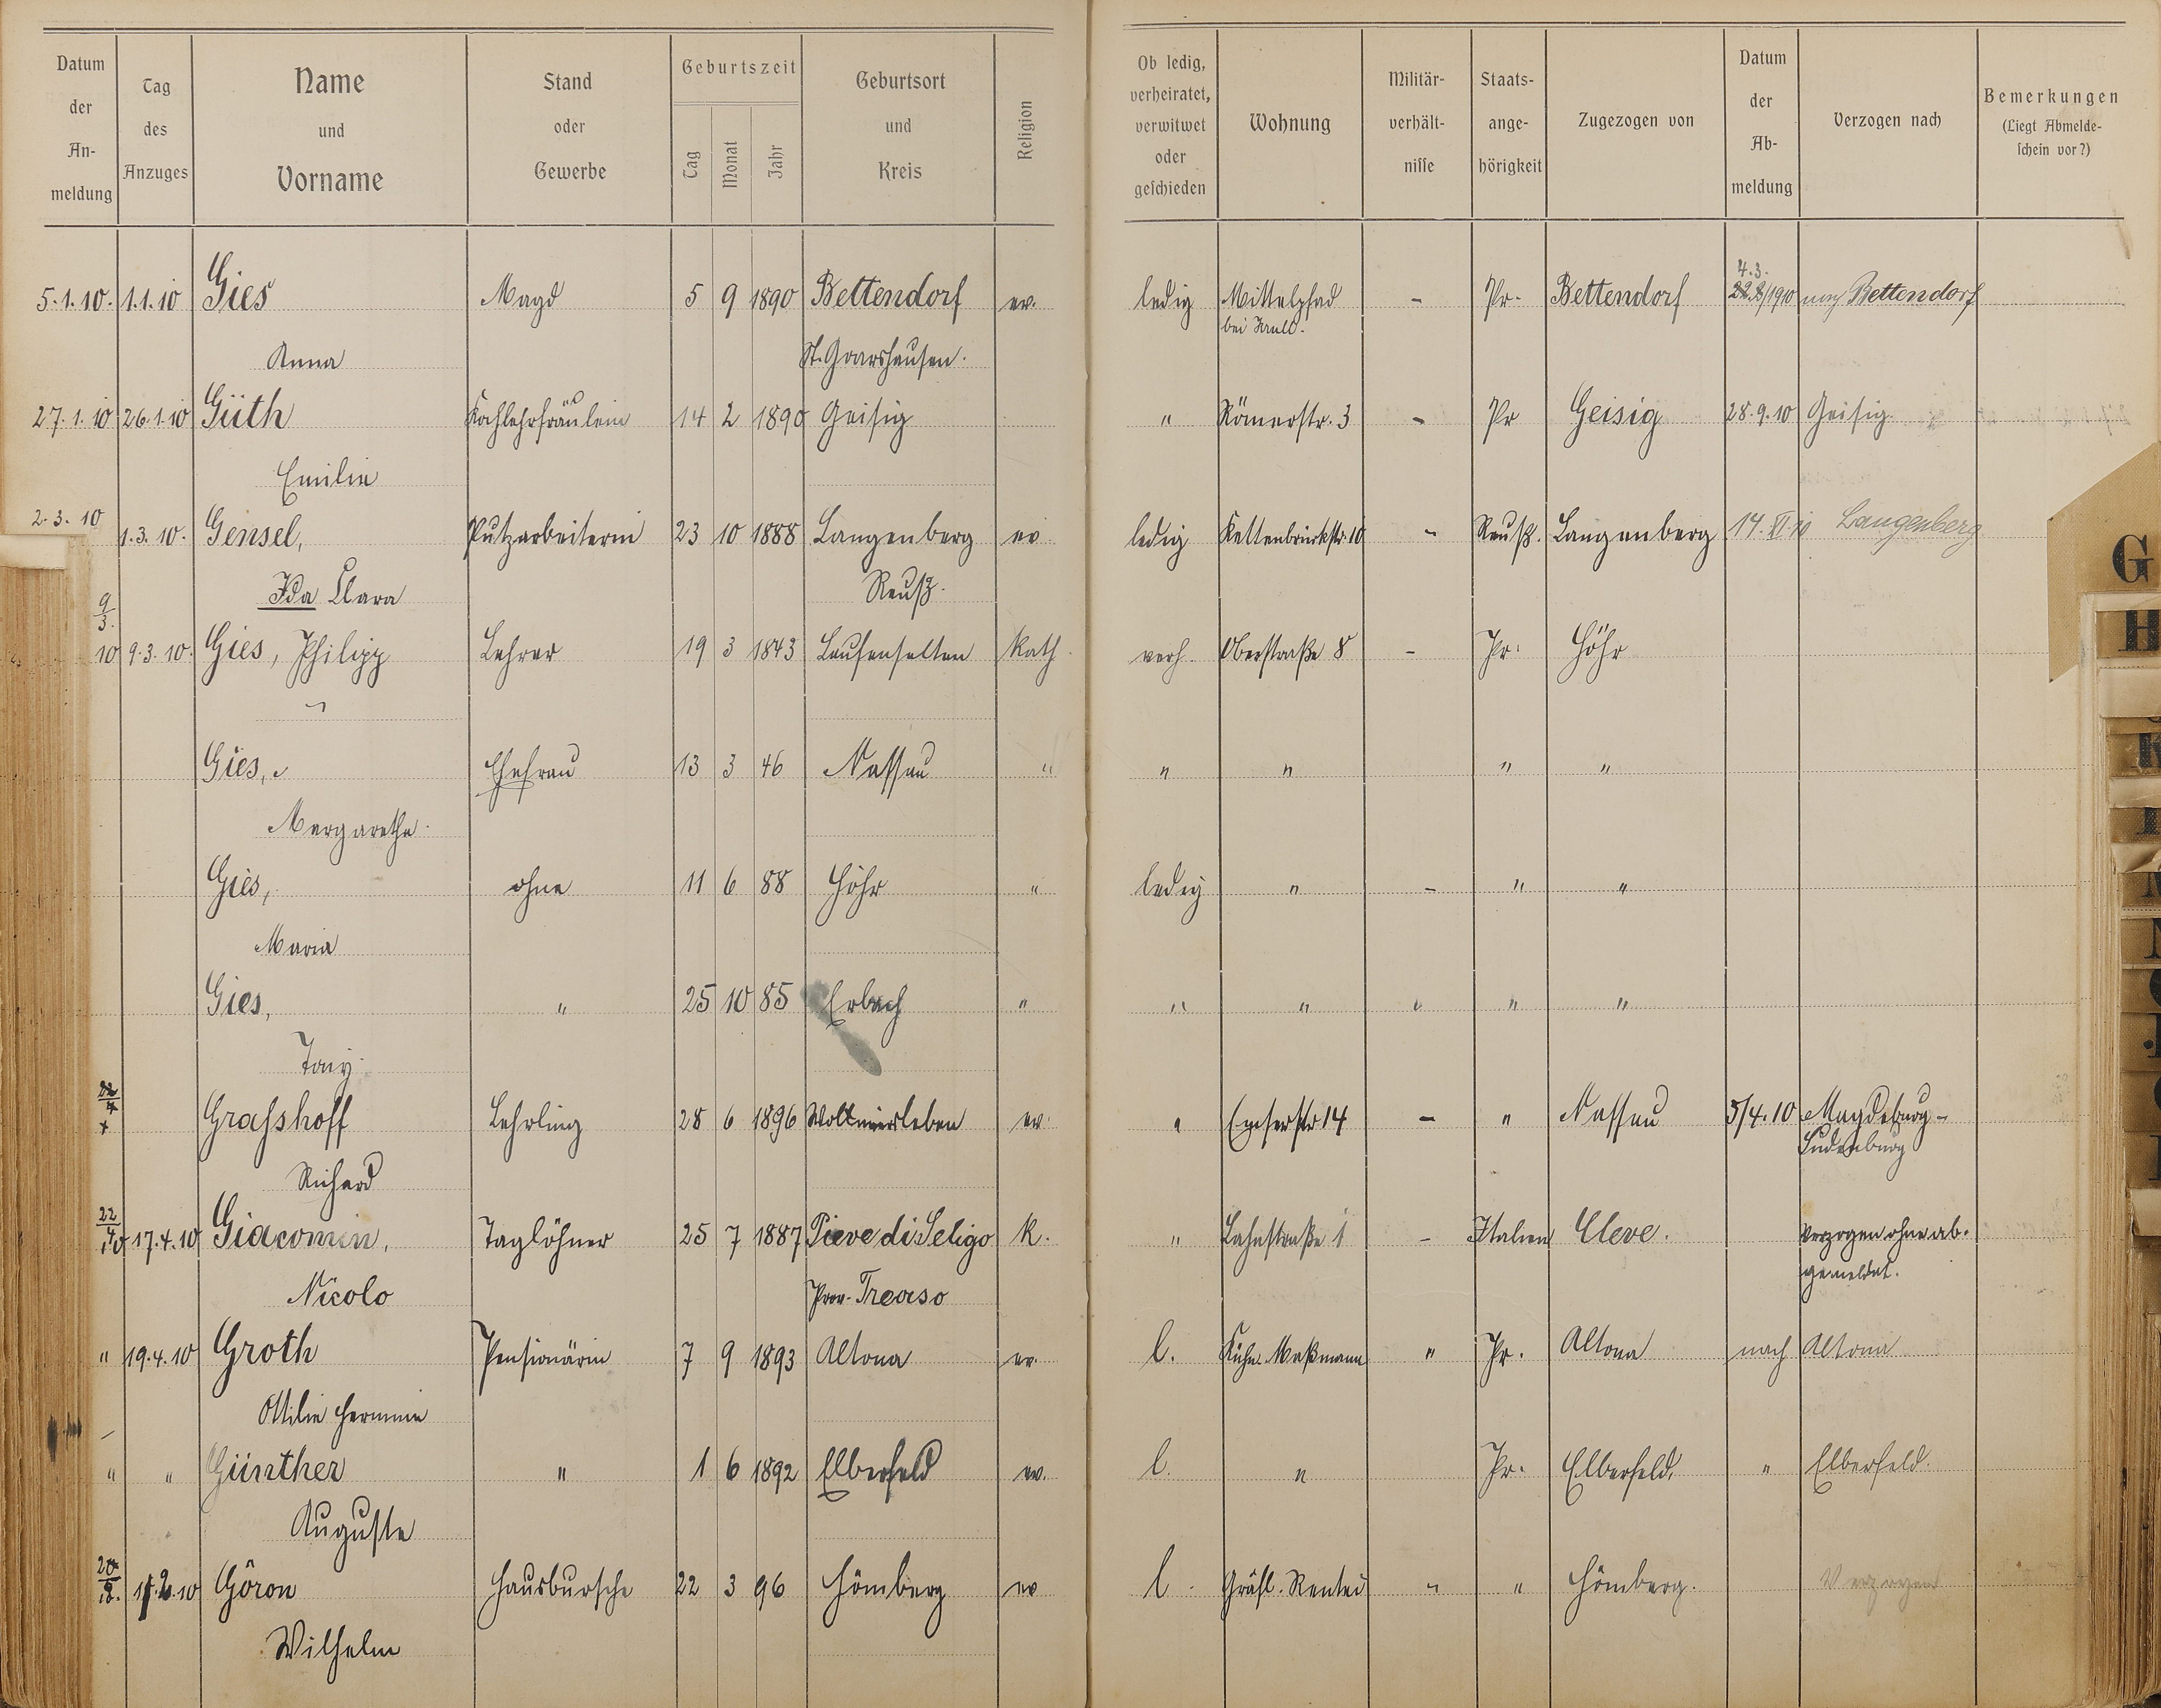 Datum der An-meldung | Tag des Anzuges | Name und Vorname | Stand oder Gewerbe | Geburtszeit Tag Monat Jahr | Geburtsort und Kreis | Religion | Ob ledig, verheiratet, verwitwet oder geschieden | Wohnung | Militär-verhält-nisse | Staats-ange-hörigkeit | Zugezogen von | Datum der Ab-meldung | Verzogen nach | Bemerkungen (Liegt Abmelde-schein vor?)
4.3.
5.1.10. 1.1.10 Gies Magd 5 9 1890 Bettendorf ev. ledig Mittelpfad - Pr. Bettendorf 1910 nach Bettendorf
bei
Anna St. Goarshausen.
27.1.10 26.1.10 Güth Kochlehrfräulein 14 2 1890 Geisig " Römerstr. 3 - Pr Geisig 28.9.10 Geisig
Emilie
2.3.10 1.3.10. Gensel, Putzarbeiterin 23 10 1888 Langenberg ev ledig Kettenbrückstr. 10 - Reuß. Langenberg 14.XI.10 Langenberg
Ida Clara Reuß.
9/3. 10 9.3.10. Gies, Philipp Lehrer 19 3 1843 Laufenselten Kath. verh. Oberstraße 8 - Pr. Höhr
Gies, Ehefrau 13 3 46 Nassau " " " " "
Margarethe
Gies, ohne 11 6 88 Höhr " ledig " - " "
Maria
Gies, " 25 10 85 Erbach " " " " " "
Tony
Grasshoff Lehrling 28 6 1896 Wolkmirsleben ev " Emserstr 14 - " Nassau 5/4.10 Magdeburg-
Richard
22/4 10 17.4.10 Giacomin, Taglöhner 25 7 1887 Pieve di Seligo K. " Lahnstraße 1 - Italien Cleve. Verzogen ohne ab-
gemeldet.
Nicolo Prov. Treviso
" 19.4.10 Groth Pensionärin 7 9 1893 Altona ev. l. Kühn. Maßmann " Pr. Altona nach Altona
Ottilie Hermine
" " Günther " 1 6 1892 Elberfeld ev. l. " Pr. Elberfeld. " Elberfeld.
Auguste
Göron Hausbursche 22 3 96 Hömberg ev l. Gräfl. Rentei " " Hömberg. Verzogen
Wilhelm
G
H
K